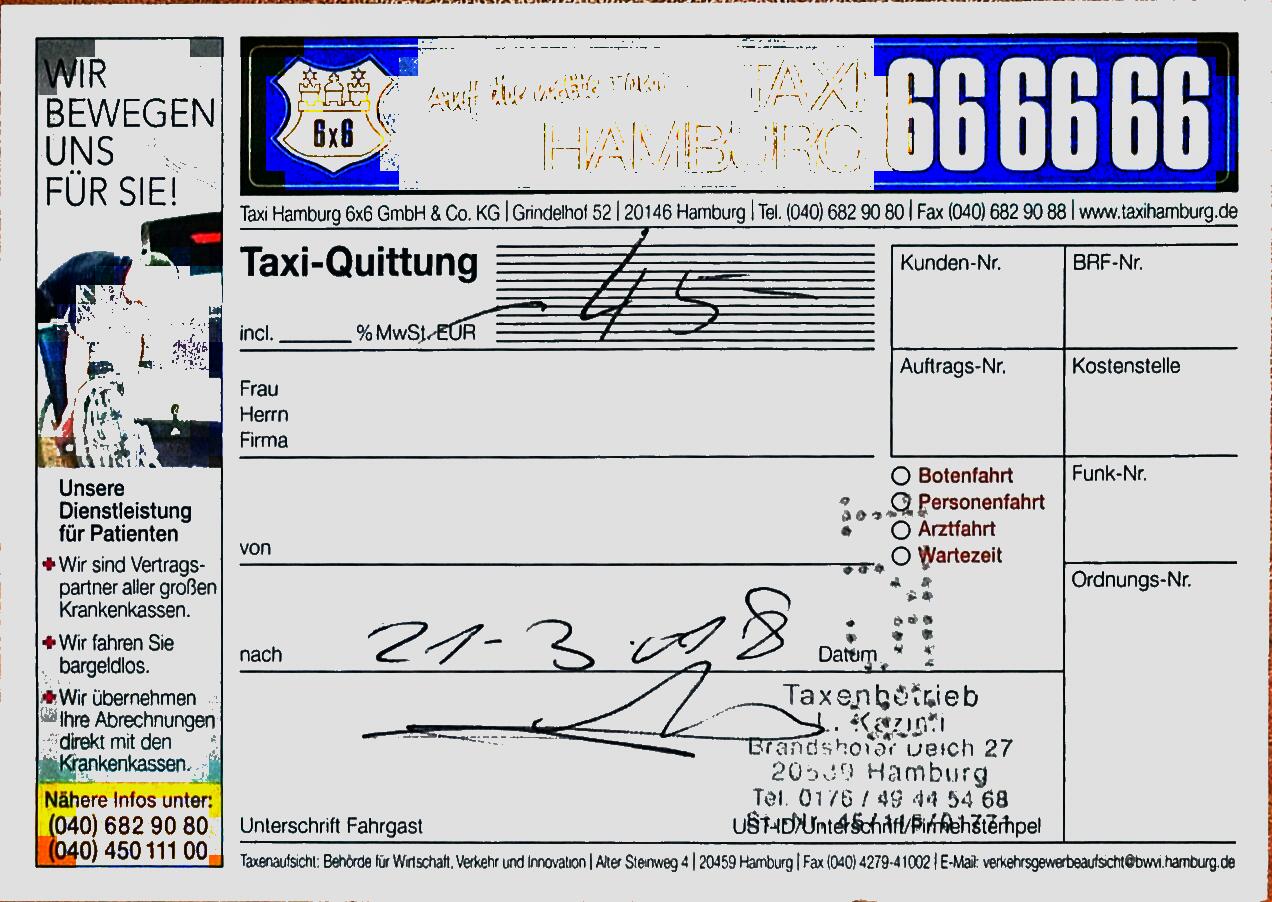 WIR
BEWEGEN
UNS
FÜR SIE!
Unsere
Dienstleistung
für Patienten
Wir sind Vertrags-
partner aller großen
Krankenkassen.
Wir fahren Sie
bargeldlos.
Wir übernehmen
Ihre Abrechnungen
direkt mit den
Krankenkassen.
Nähere Infos unter:
(040) 682 90 80
(040) 450 111 00
6x6
TAXI
HAMBURG
66 66 66
Taxi Hamburg 6x6 GmbH & Co. KG | Grindelhof 52 | 20146 Hamburg | Tel. (040) 682 90 80 | Fax (040) 682 90 88 | www.taxihamburg.de
Taxi-Quittung
45
incl. ______ % MwSt. EUR
Kunden-Nr.
BRF-Nr.
Auftrags-Nr.
Kostenstelle
Frau
Herrn
Firma
Botenfahrt
Personenfahrt
Arztfahrt
Wartezeit
Funk-Nr.
von
Ordnungs-Nr.
nach
21-3.018
Datum
Taxenbetrieb
Deich 27
Hamburg
Tel. 0176 / 49 44 54 68
Unterschrift Fahrgast
UST-ID/Unterschrift/Firmenstempel
Taxenaufsicht: Behörde für Wirtschaft, Verkehr und Innovation | Alter Steinweg 4 | 20459 Hamburg | Fax (040) 4279-41002 | E-Mail: verkehrsgewerbeaufsicht@bwvi.hamburg.de